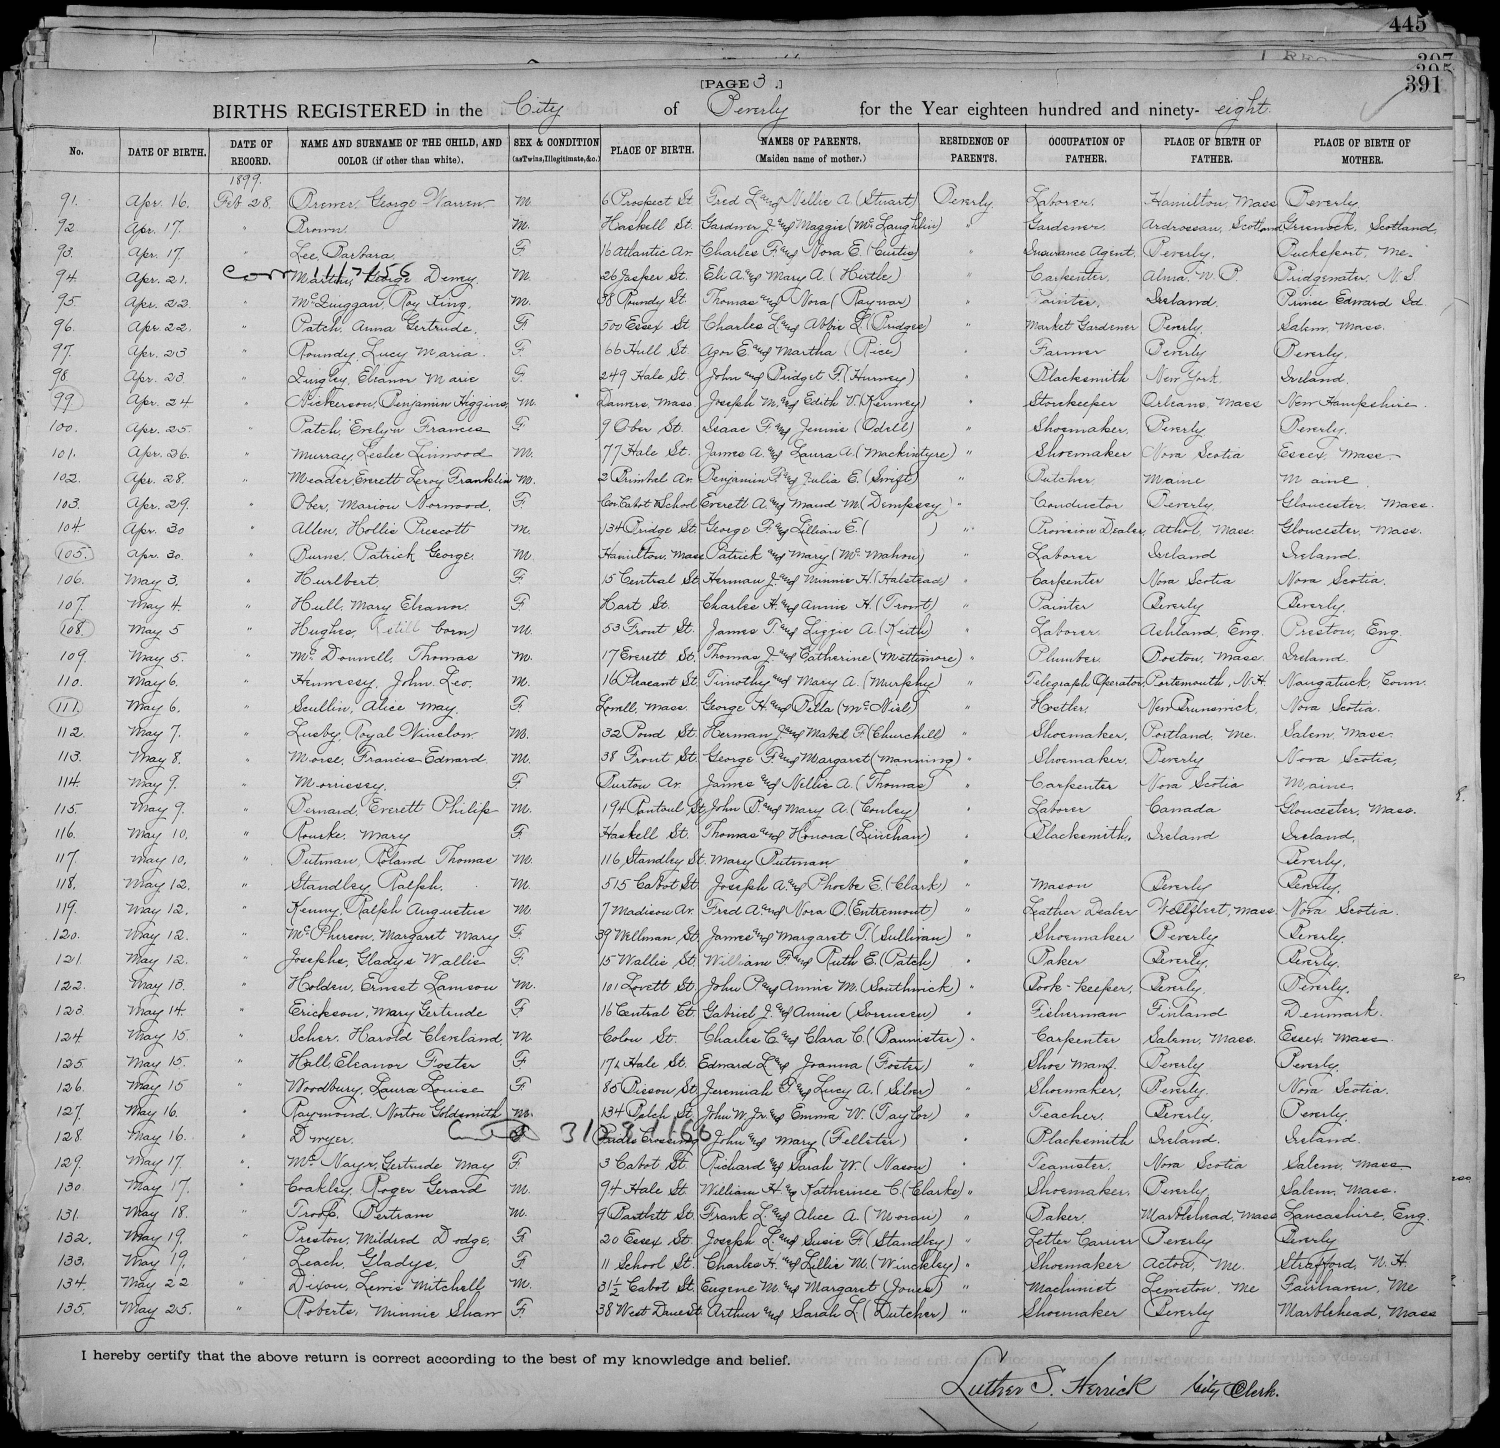 445
397
395
391
[PAGE 3 .]
BIRTHS REGISTERED in the City of Beverly for the Year eighteen hundred and ninety- eight
No. DATE OF BIRTH. DATE OF RECORD. NAME AND SURNAME OF THE CHILD, AND COLOR (if other than white). SEX & CONDITION (as Twins, Illegitimate, &c.) PLACE OF BIRTH. NAMES OF PARENTS. (Maiden name of mother.) RESIDENCE OF PARENTS. OCCUPATION OF FATHER. PLACE OF BIRTH OF FATHER. PLACE OF BIRTH OF MOTHER.
1899.
91. Apr. 16. Feb 28. Brewer, George Warren M. 6 Prospect St. Fred L. and Nellie A. (Stuart) Beverly Laborer. Hamilton, Mass Beverly.
92 Apr. 17. " Brown. M. Haskell St. Gardner J. and Maggie (McLaughlin) " Gardener. Ardrossan, Scotland Greenock, Scotland,
93. Apr. 17 " Lee, Barbara. F. 16 Atlantic Av. Charles F. and Nora E. (Curtis) " Insurance Agent. Beverly. Bucksport, Me.
94. Apr. 21. " Martin, George Dewey. M. 26 Jasper St. Eli A. and Mary A. (Hirtle) " Carpenter. Alma N. B. Bridgewater, N. S.
95 Apr. 22. " McQuiggan, Roy King. M. 38 Roundy St. Thomas and Nora (Raynor) " Painter. Ireland. Prince Edward Id
96. Apr. 22. " Patch, Anna Gertrude. F. 500 Essex St. Charles L. and Abbie L. (Bridges) " Market Gardener Beverly. Salem, Mass.
97. Apr. 23 " Roundy, Lucy Maria. F. 66 Hull St. Azor E. and Martha (Rice) " Farmer Beverly Beverly.
98. Apr. 23. " Quigley, Eleanor Marie F. 249 Hale St. John and Bridget F. (Hurney) " Blacksmith New York. Ireland.
99 Apr. 24 " Nickerson, Benjamin Higgins, M. Danvers, Mass. Joseph M. and Edith V. (Kenney) " Storekeeper Orleans, Mass New Hampshire.
100. Apr. 25. " Patch, Evelyn Frances F. 9 Ober St. Isaac F. and Jennie (Odell) " Shoemaker. Beverly Beverly.
101. Apr. 26. " Murray, Leslie Linwood M. 77 Hale St. James A. and Laura A. (Mackintyre) " Shoemaker Nova Scotia Essex, Mass
102. Apr. 28. " Meader, Everett Leroy Franklin M. 2 Brimbel Av. Benjamin F. and Julia E. (Swift) " Butcher. Maine Maine.
103. Apr. 29. " Ober, Marion Norwood, F. Cor. Cabot & School Everett A. and Maud M. (Dempsey) " Conductor Beverly. Gloucester, Mass.
104 Apr. 30 " Allen, Hollis Prescott M. 134 Bridge St. George F. and Lillian E. ( ) " Provision Dealer, Athol, Mass. Gloucester, Mass.
105. Apr. 30. " Burns, Patrick George. M. Hamilton, Mass Patrick and Mary (McMahon) " Laborer Ireland Ireland.
106. May 3. " Hurlbert F. 15 Central St. Herman J. and Minnie H. (Halstead) " Carpenter Nova Scotia Nova Scotia.
107. May 4. " Hull, Mary Eleanor. F. Hart St. Charles H. and Annie H. (Trowt) " Painter Beverly Beverly.
108. May 5 " Hughes, (still born) M. 53 Front St. James T. and Lizzie A. (Keith) " Laborer. Ashland, Eng. Preston, Eng.
109. May 5. " McDonnell, Thomas M. 17 Everett St. Thomas J. and Catherine (Mattimore) " Plumber. Boston, Mass. Ireland.
110. May 6. " Hennessy, John Leo. M. 16 Pleasant St. Timothy and Mary A. (Murphy) " Telegraph Operator, Portsmouth, N.H. Naugatuck, Conn.
111. May 6. " Scullin, Alice May. F. Lowell, Mass. George H. and Bella (McNiel) " Hostler. New Brunswick, Nova Scotia.
112. May 7. " Lusby, Royal Winslow. M. 32 Pond St. Herman J. and Mabel F. (Churchill) " Shoemaker. Portland, Me. Salem, Mass.
113. May 8. " Morse, Francis Edward M. 38 Front St. George F. and Margaret (Manning) " Shoemaker. Beverly Nova Scotia,
114. May 9. " Morrissey. F. Burton Av. James and Nellie A. (Thomas) " Carpenter Nova Scotia Maine
115. May 9. " Bernard, Everett Philip M. 194 Rantoul St. John B. and Mary A. (Conley) " Laborer Canada Gloucester, Mass.
116. May 10. " Rourke, Mary F. Haskell St. Thomas and Honora (Linehan) " Blacksmith, Ireland Ireland,
117. May 10. " Putman, Roland Thomas M. 116 Standley St. Mary Putman " Beverly.
118. May 12. " Standley, Ralph. M. 515 Cabot St. Joseph A. and Phoebe E. (Clark) " Mason Beverly Beverly.
119. May 12. " Kenny, Ralph Augustus M. 7 Madison Av. Fred A. and Nora O. (Entremont) " Leather Dealer Wellfleet, Mass. Nova Scotia.
120. May 12. " McPherson, Margaret Mary F. 39 Wellman St. James and Margaret T. (Sullivan) " Shoemaker Beverly Beverly.
121. May 12. " Josephs, Gladys Wallis F. 15 Wallis St. William F. and Ruth E. (Patch) " Baker Beverly. Beverly.
122. May 13. " Holden, Ernest Lamson M. 101 Lovett St. John P. and Annie M. (Southwick) " Book-keeper, Beverly. Beverly.
123. May 14. " Erickson, Mary Gertrude F. 16 Central Ct. Gabriel J. and Annie (Sorensen) " Fisherman Finland Denmark.
124 May 15 " Scher, Harold Cleveland, M. Colon St. Charles C. and Clara C. (Bannister) " Carpenter Salem, Mass. Essex, Mass.
125. May 15. " Hall, Eleanor Foster F. 174 Hale St. Edward L. and Joanna (Foster) " Shoe Manf. Beverly Beverly.
126. May 15 " Woodbury, Laura Louise F. 85 Bisson St. Jeremiah F. and Lucy A. (Silver) " Shoemaker, Beverly. Nova Scotia.
127. May 16. " Raymond, Norton Goldsmith M. 134 Balch St. John W. Jr. and Emma W. (Taylor) " Teacher. Beverly. Beverly.
128. May 16. " Dwyer. F. 3108 1166 Prides Crossing John and Mary (Felleter) " Blacksmith Ireland. Ireland.
129. May 17 " McNayr, Gertrude May F. 3 Cabot St. Richard and Sarah W. (Nason) " Teamster. Nova Scotia Salem, Mass
130. May 17. " Coakley, Roger Gerard M. 94 Hale St. William H. and Katherine C. (Clarke) " Shoemaker. Beverly. Salem, Mass.
131. May 18. " Troop, Bertram M. 9 Bartlett St. Frank L. and Alice A. (Moran) " Baker Marblehead, Mass Lancashire, Eng.
132. May 19. " Preston, Mildred Dodge. F. 20 Essex St. Joseph L. and Susie F. (Standley) " Letter Carrier Beverly Beverly
133. May 19, " Leach, Gladys, F. 11 School St. Charles H. and Lillie M. (Winckley) " Shoemaker Acton, Me. Strafford, N. H.
134. May 22 " Dixon, Lewis Mitchell, M. 31 1/2 Cabot St. Eugene M. and Margaret (Jones) " Machinist Lewiston, Me Fairhaven, Me
135. May 25. " Roberts, Minnie Shaw F. 38 West Dane St. Arthur and Sarah L. (Dutcher) " Shoemaker Beverly Marblehead, Mass
I hereby certify that the above return is correct according to the best of my knowledge and belief.
Luther S. Herrick City Clerk.